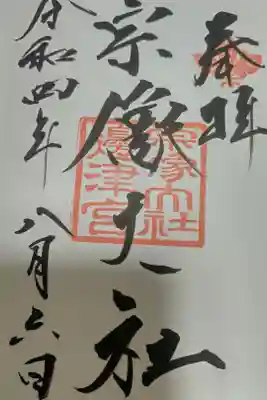 奉拝
宗像大社
宗像大社
邊津宮
令和四年八月六日